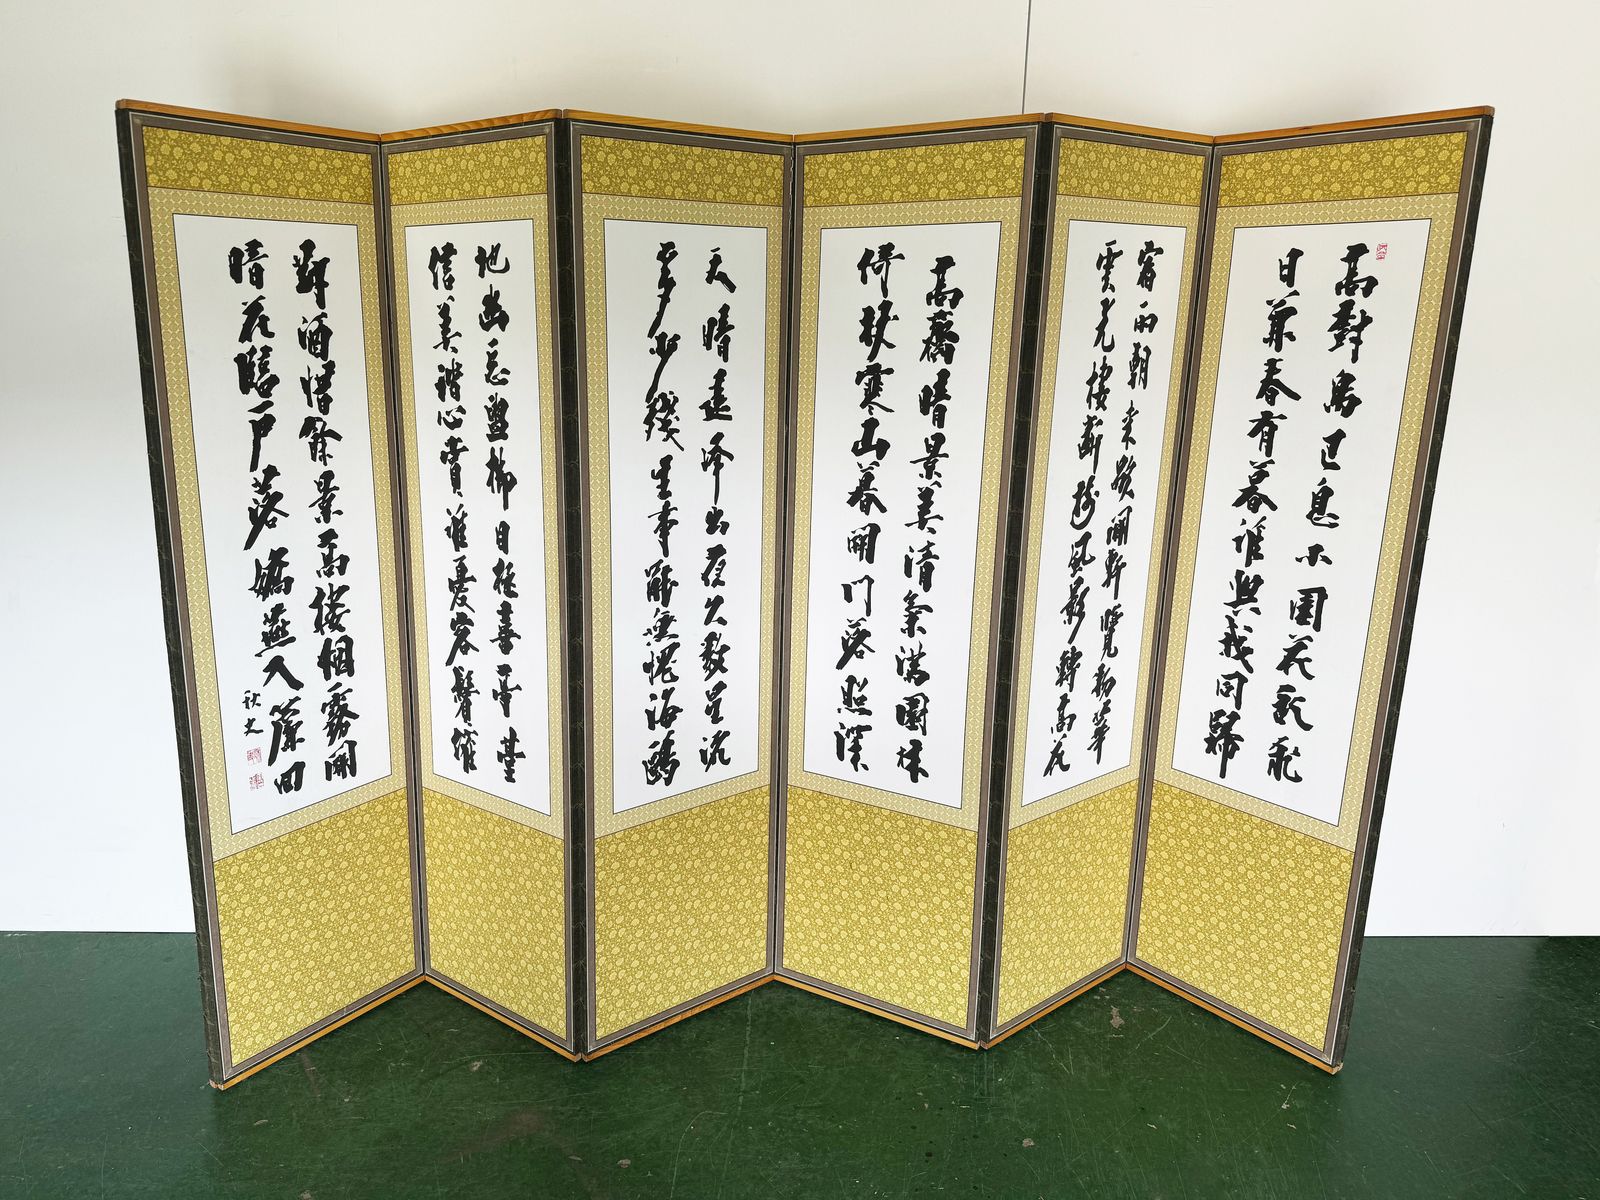 高樹鳥已息小園花亂飛
日兼春有暮誰與我同歸
宿雨朝來歇開軒覽物華
雲光棲斷樹風影轉高花
高齋晴景美清氣滿園林
倚杖寒山暮開門落照深
天晴遠峰出夜久數星流
多少殘生事能無愧海鷗
地幽忘盥櫛日極喜亭臺
信美諧心賞誰憂容鬢催
對酒惜餘景高樓烟霧開
晴花臨戶落嬌燕入簾回
秋史